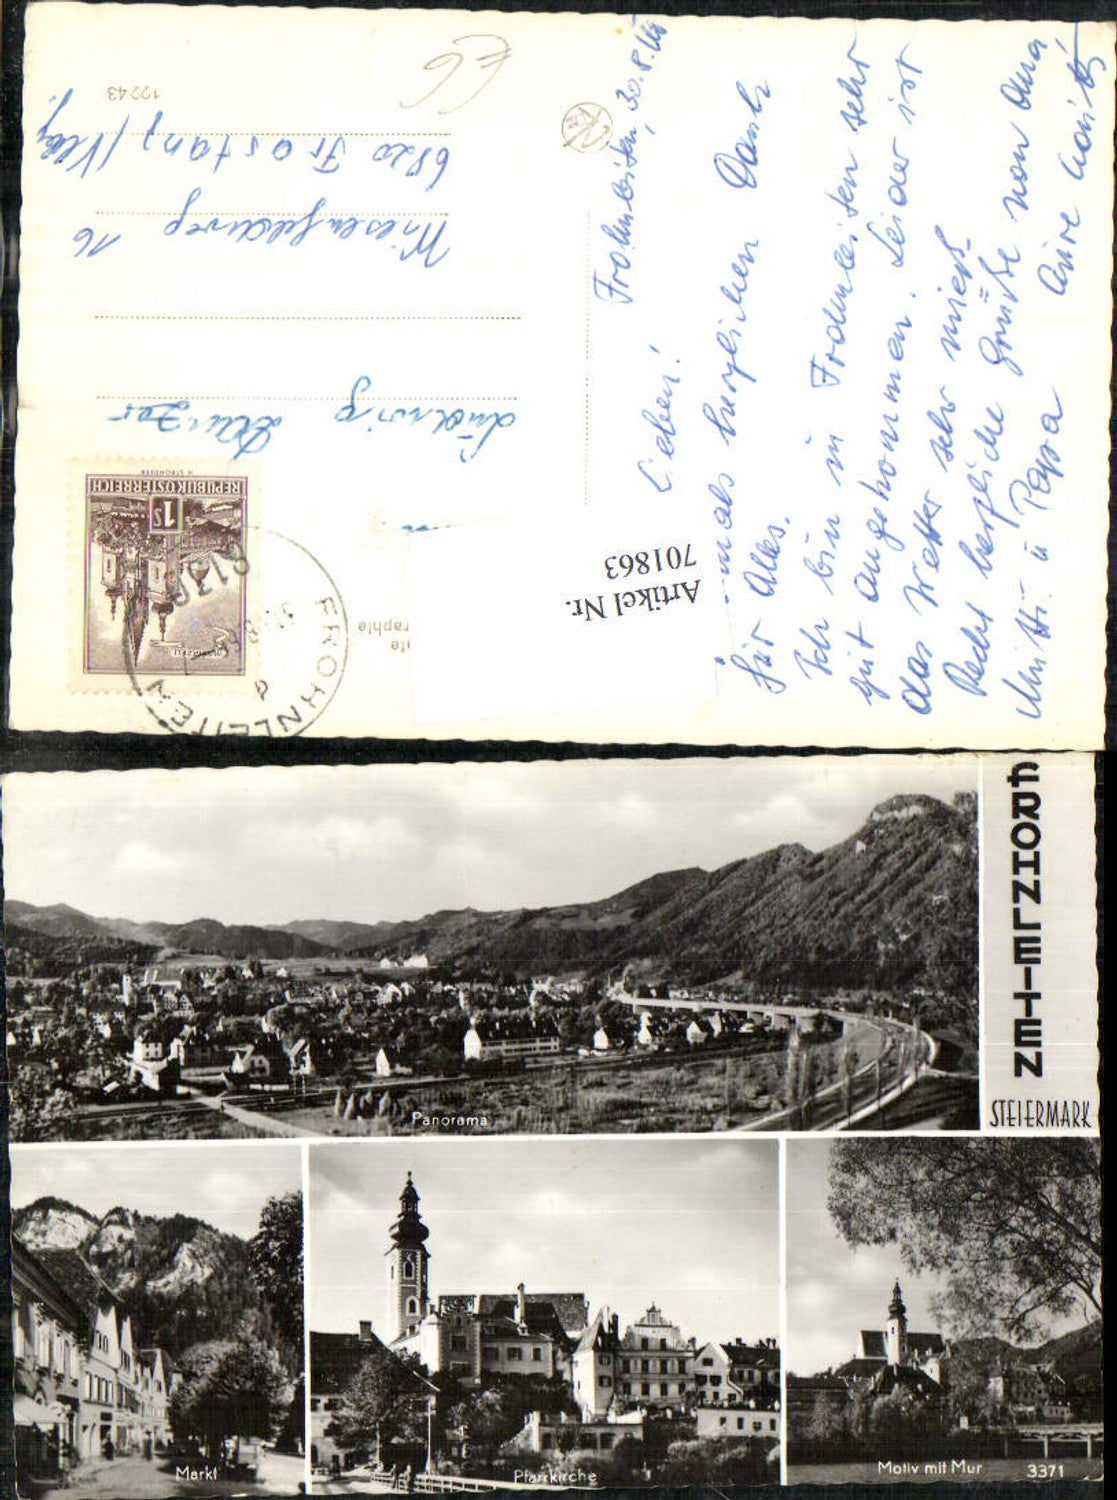 Frohnleiten, 30.8.
Lieben!
mals herzlichen Dank
für Alles.
Ich bin in Frohnleiten sehr
gut angekommen. Leider ist
das Wetter sehr mieß.
Recht herzliche Grüße von Oma
Mutti ü Papa
Ludwig
Wiesenfeldweg 16
6820 Frastanz/Vlbg.
12243
€6
REPUBLIK ÖSTERREICH
1S
8130
FROHNLEITEN
Artikel Nr.
701863
FROHNLEITEN
STEIERMARK
Panorama
Markt
Pfarrkirche
Motiv mit Mur
3371